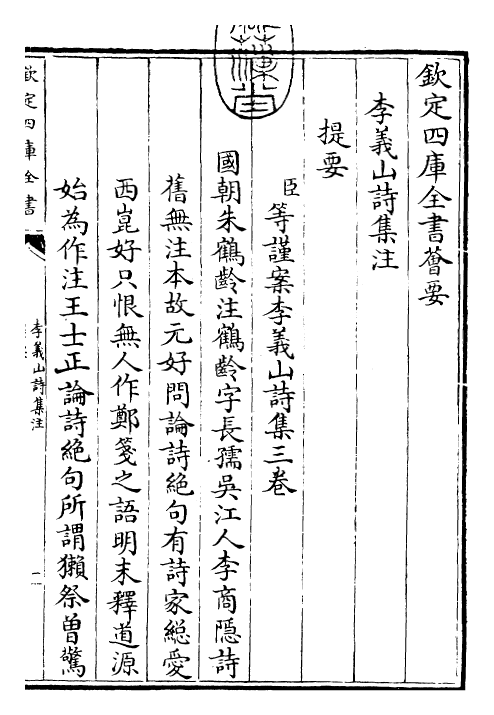 欽定四庫全書薈要
李義山詩集注
提要
臣等謹案李義山詩集三卷
國朝朱鶴齡注鶴齡字長孺吳江人李商隱詩
舊無注本故元好問論詩絕句有詩家總愛
西崑好只恨無人作鄭箋之語明末釋道源
始為作注王士正論詩絕句所謂獺祭曾驚
欽定四庫全書
李義山詩集注